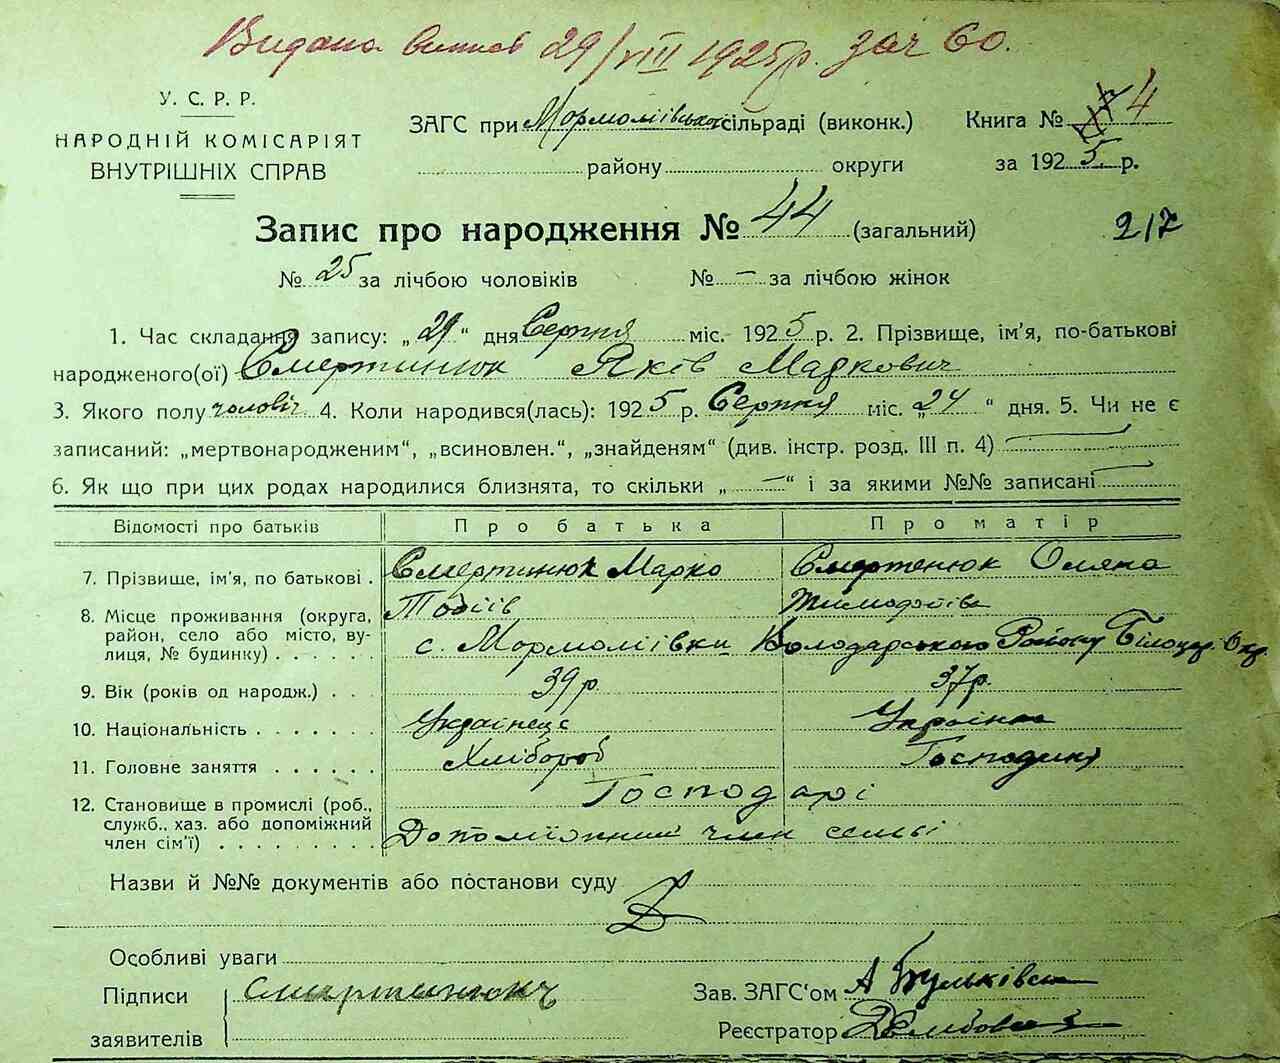 Видана 29/VIII 1925р. зач 60.
У. С. Р. Р.
НАРОДНІЙ КОМІСАРІЯТ
ВНУТРІШНІХ СПРАВ
ЗАГС при Мормоліївської сільраді (виконк.)
району округи
Книга № 4
за 1925 р.
Запис про народження № 44 (загальний)
217
№ 25 за лічбою чоловіків № — за лічбою жінок
1. Час складання запису: „29“ дня Серпня міс. 1925 р. 2. Прізвище, ім'я, по-батькові
народженого(ої) Смертинюк Яків Маркович
3. Якого полу чоловіч 4. Коли народився(лась): 1925 р. Серпня міс. „24“ дня. 5. Чи не є
записаний: „мертвонародженим“, „всиновлен.“, „знайденям“ (див. інстр. розд. III п. 4)
6. Як що при цих родах народилися близнята, то скільки „—“ і за якими №№ записані
Відомості про батьків Про батька Про матір
7. Прізвище, ім'я, по батькові . Смертинюк Марко Смертенюк Оляна
Тобіїв Тимофіїва
8. Місце проживання (округа,
район, село або місто, ву-
лиця, № будинку) . . . . . . с. Мормоліївки Володарського Району Білоцер. Окр.
9. Вік (років од народж.) . . . 39 р. 37 р.
10. Національність . . . . . . . Українець Українка
11. Головне заняття . . . . . . Хлібороб Господиня
12. Становище в промислі (роб.,
служб., хаз. або допоміжний
член сім'ї) . . . . . . . . .
Господарі
Допоміжний член сем'ї
Назви й №№ документів або постанови суду
Особливі уваги
Підписи
заявителів
Смертинюк
Зав. ЗАГС'ом А
Реєстратор